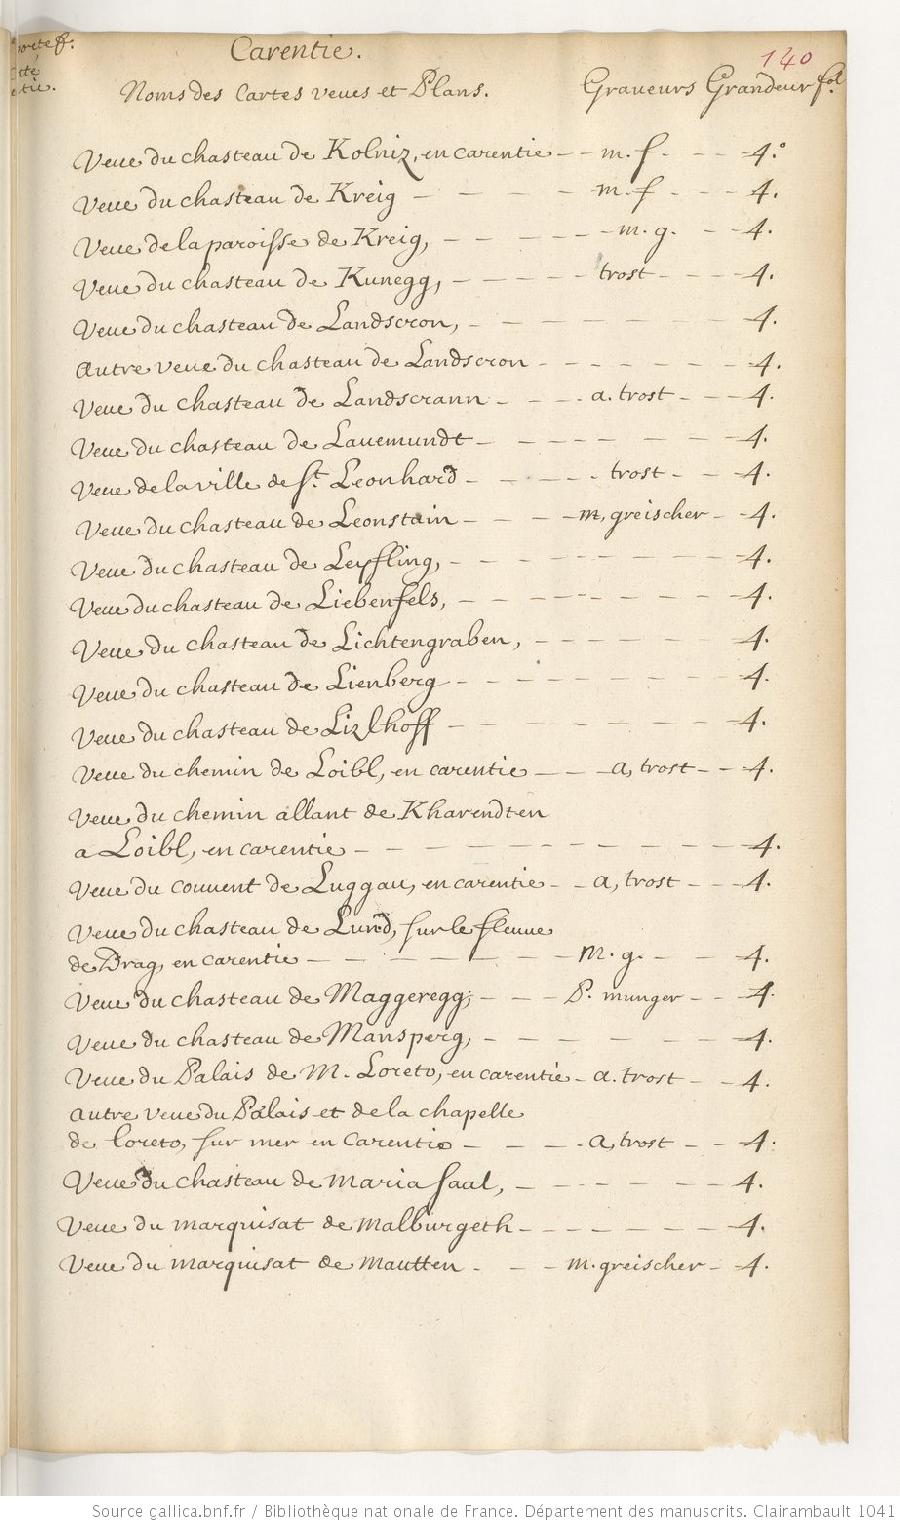 Carentie.
140
Noms des Cartes veues et Plans. Graveurs Grandeur fol.
Veue du chasteau de Kolniz, en carentie - - m. f. - - 4.°
Veue du chasteau de Kreig - - - - m. f. - - 4.
Veue de la paroisse de Kreig, - - - - m. g. - 4.
Veue du chasteau de Kunegg, - - - - trost - - - 4.
Veue du chasteau de Landscron, - - - - - - 4.
autre veue du chasteau de Landscron - - - - - - 4.
Veue du chasteau de Landscrann - - - a. trost - - 4.
Veue du chasteau de Lavemundt - - - - - - 4.
Veue de la ville de St. Leonhard - - - - trost - - 4.
Veue du chasteau de Leonstain - - - m, greischer - 4.
Veue du chasteau de Leyfling, - - - - - - - 4.
Veue du chasteau de Liebenfels, - - - - - - - 4.
Veue du chasteau de Lichtengraben, - - - - - - 4.
Veue du chasteau de Lienberg - - - - - - - 4.
Veue du chasteau de Lizlhoff - - - - - - - 4.
Veue du chemin de Loibl, en carentie - - - a, trost - - 4.
Veue du chemin allant de Kharendten
a Loibl, en carentie - - - - - - - - - 4.
Veue du couvent de Luggau, en carentie - - a, trost - - - 4.
Veue du chasteau de Lund, sur le fleuve
de Drag, en carentie - - - - - - M. g. - - 4.
Veue du chasteau de Maggeregg, - - - P. munger - - 4.
Veue du chasteau de Mansperg, - - - - - - 4.
Veue du Palais de M. Loreto, en carentie - a. trost - - 4.
autre veue du Palais et de la chapelle
de loreto, sur mer en Carentie - - - a, trost - - 4.
Veue du chasteau de maria saal, - - - - - - 4.
Veue du marquisat de malburgeth - - - - - - 4.
Veue du marquisat de mautten - - - m. greischer - 4.
Source gallica.bnf.fr / Bibliothèque nationale de France. Département des manuscrits. Clairambault 1041